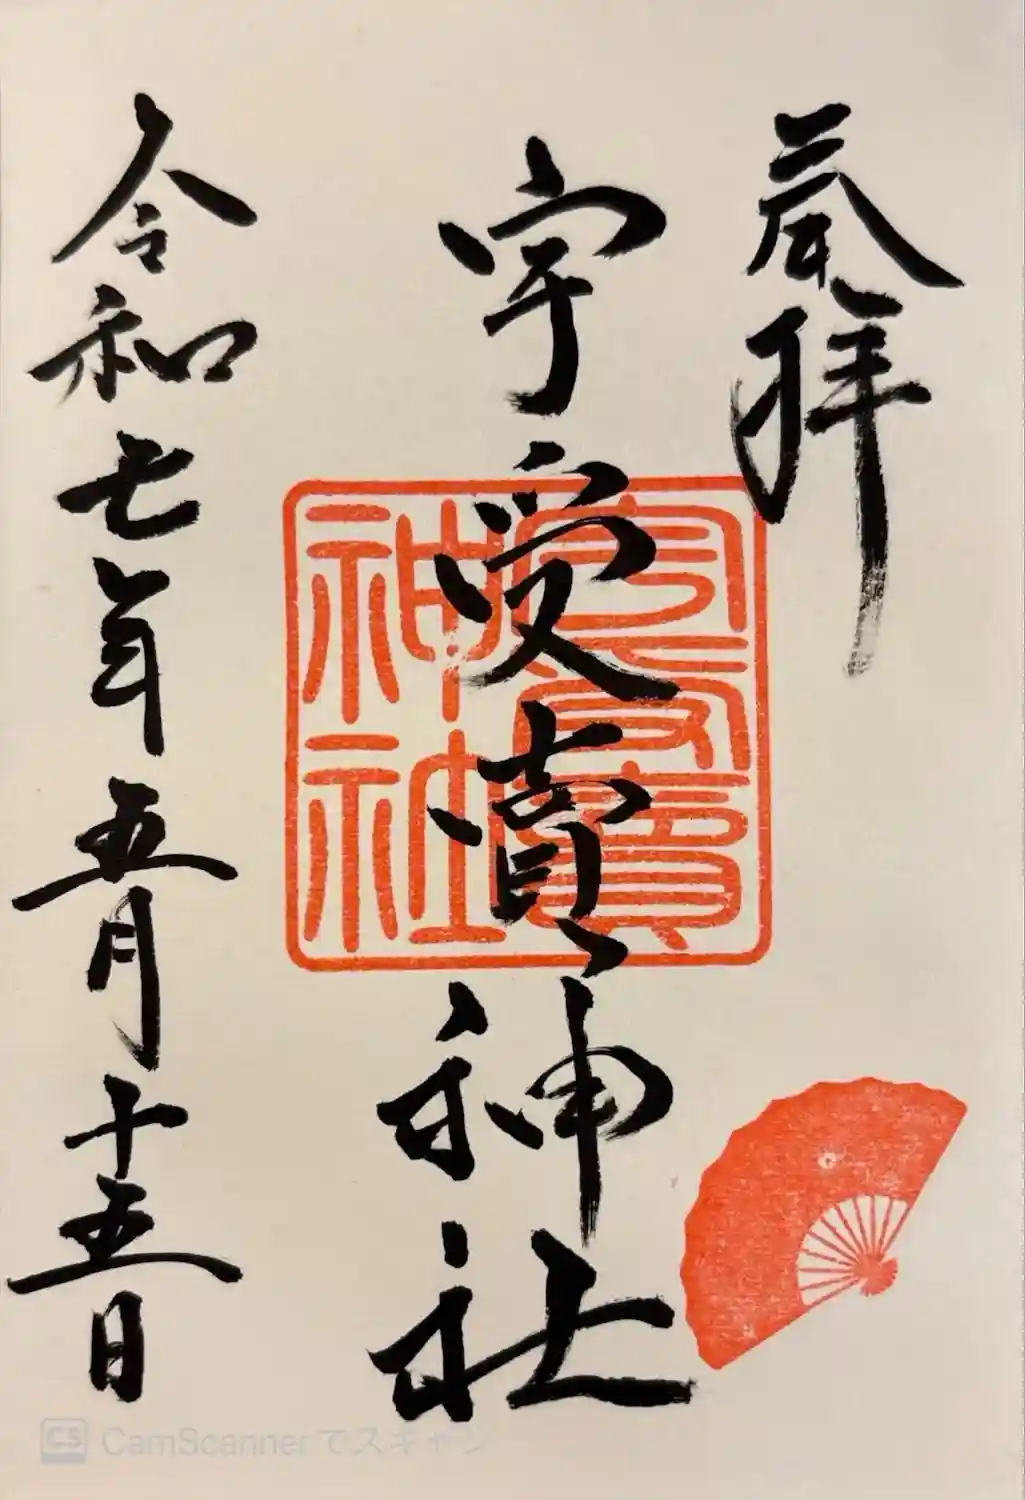 奉拝
宇受賣神社
宇受賣
神社
令和七年五月十五日
CS CamScannerでスキャン